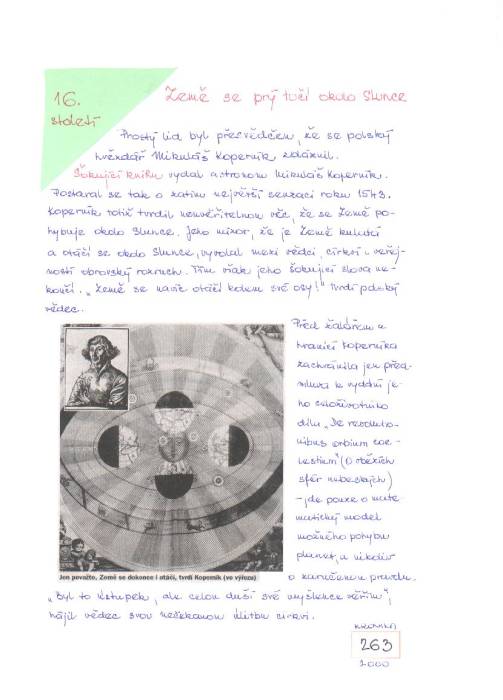 16.
století
Země se prý točí okolo Slunce
Prostý lid byl přesvědčen, že se polský
hvězdář Mikuláš Koperník zbláznil.
Šokující knihu vydal astronom Mikuláš Koperník.
Postaral se tak o zatím největší senzaci roku 1543.
Koperník totiž tvrdil neuvěřitelnou věc, že se Země po-
hybuje okolo Slunce. Jeho názor, že je Země kulatá
a otáčí se okolo Slunce, vyvolal mezi vědci, církví i veřej-
ností obrovský rozruch. Tím však jeho šokující slova ne-
končí. „Země se navíc otáčí kolem své osy!" tvrdí polský
vědec.
Před žalářem a
hranicí Koperníka
zachránila jen před-
mluva k vydání je-
ho celoživotního
díla „De revolutio-
nibus orbium coe-
lestium" (O obězích
sfér nebeských)
- jde pouze o mate
matický model
možného pohybu
planet, a nikoliv
o zaručenou pravdu.
Jen považte, Země se dokonce i otáčí, tvrdí Koperník (ve výřezu)
„Byl to ústupek, ale celou duší své myšlence věřím",
hájil vědec svou nečekanou úlitbu církvi.
KRONIKA
263
2000